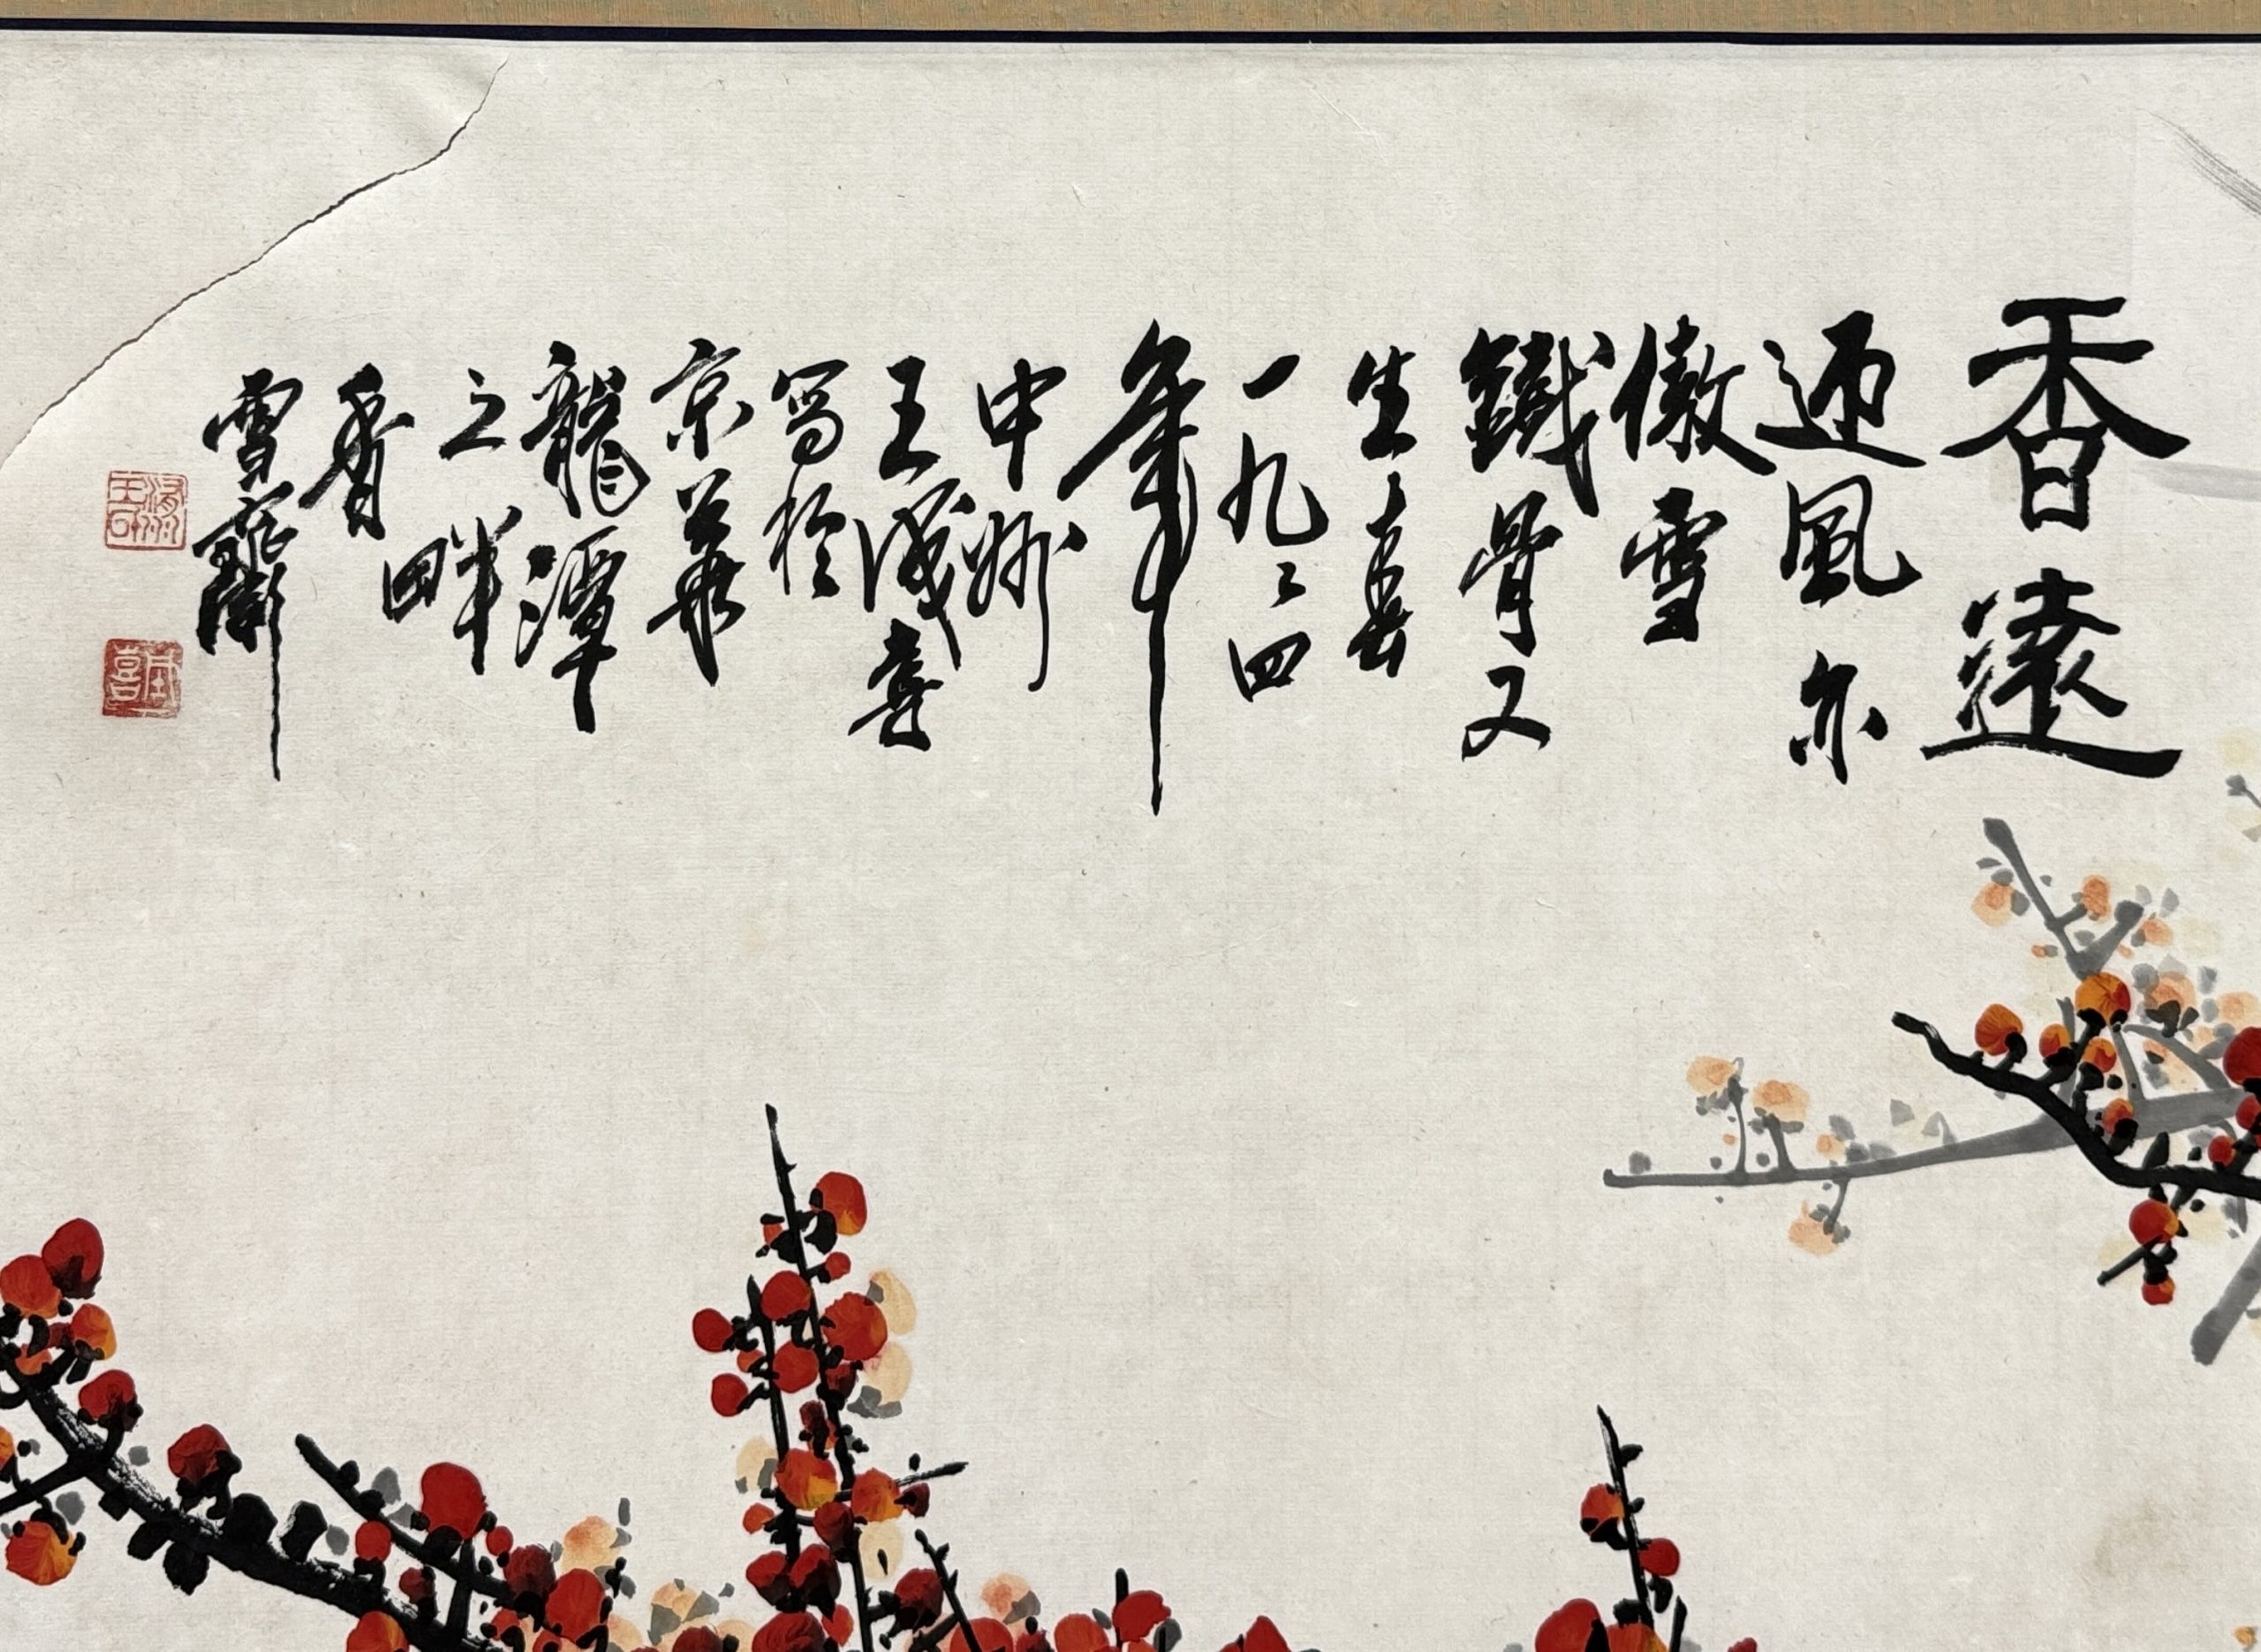 香遠
迎風亦
傲雪
鐵骨又
生春
一九九四
年
中州
王成喜
寫於
京華
龍潭
之畔
香
雪
成喜